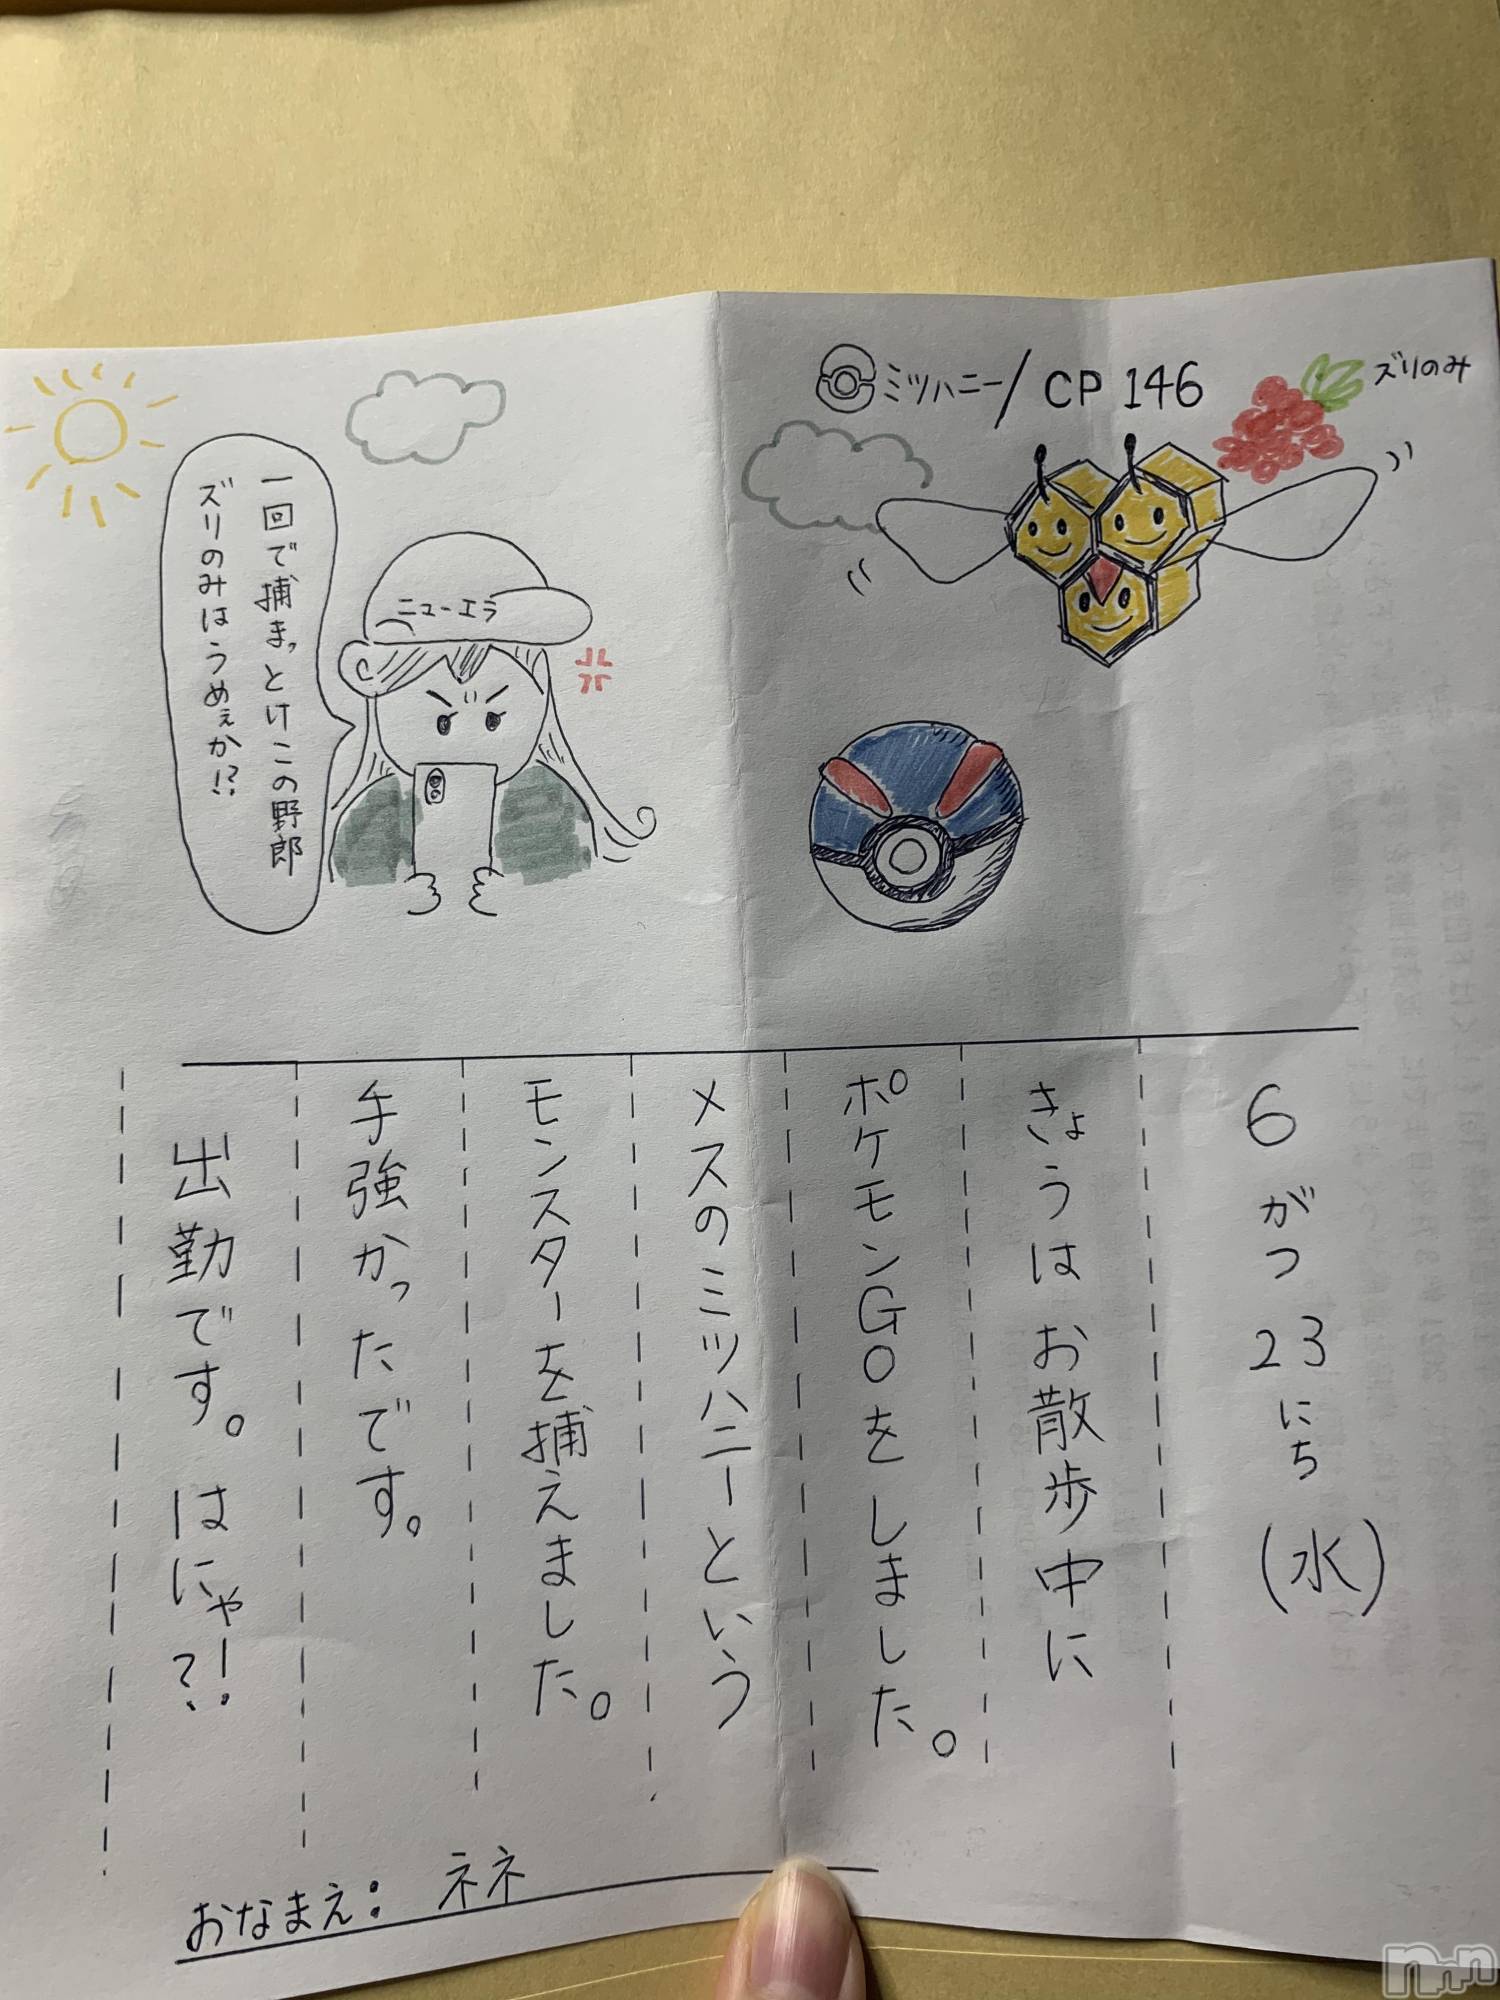 ミツハニー/ CP 146
ズリのみ
一回で捕まっとけこの野郎
ズリのみはうめぇか!?
ニューエラ
6がつ23にち(水)
きょうはお散歩中に
ポケモンGOをしました。
メスのミツハニーという
モンスターを捕えました。
手強かったです。
出勤です。はにゃ!?
おなまえ: ネネ